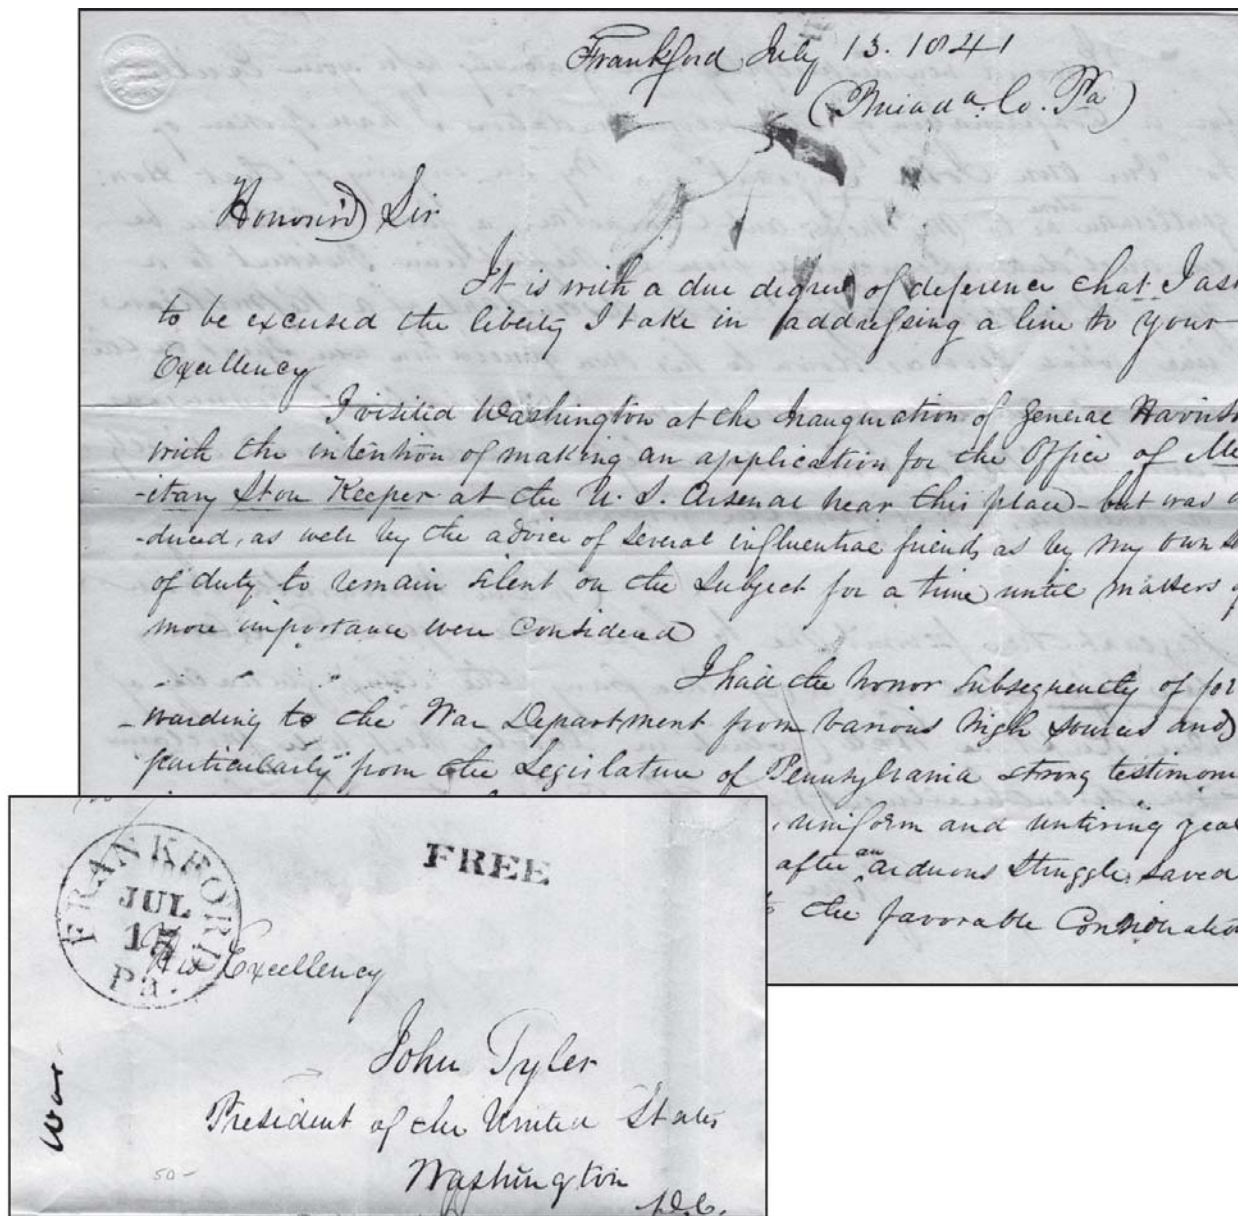 Frankford July 13. 1841
(Philada. Co. Pa)
Honour'd Sir
It is with a due degree of deference that I ask
to be excused the liberty I take in addressing a line to your
Excellency
I visited Washington at the Inauguration of General Harris
with the intention of making an application for the Office of Mil
-itary Store Keeper at the U. S. Arsenal near this place - but was
-duced, as well by the advice of several influential friends as by my own
of duty to remain silent on the Subject for a time until matters of
more importance were Considered
I had the honor subsequently of for
-warding to the War Department from various high sources and
"particularly" from the Legislature of Pennsylvania strong testimoni
, uniform and untiring zeal
after an arduous struggle, saved
the favorable Consideration
FRANKFORD
JUL
15
Pa.
FREE
His Excellency
John Tyler
President of the United States
Washington
D.C.
War
50-